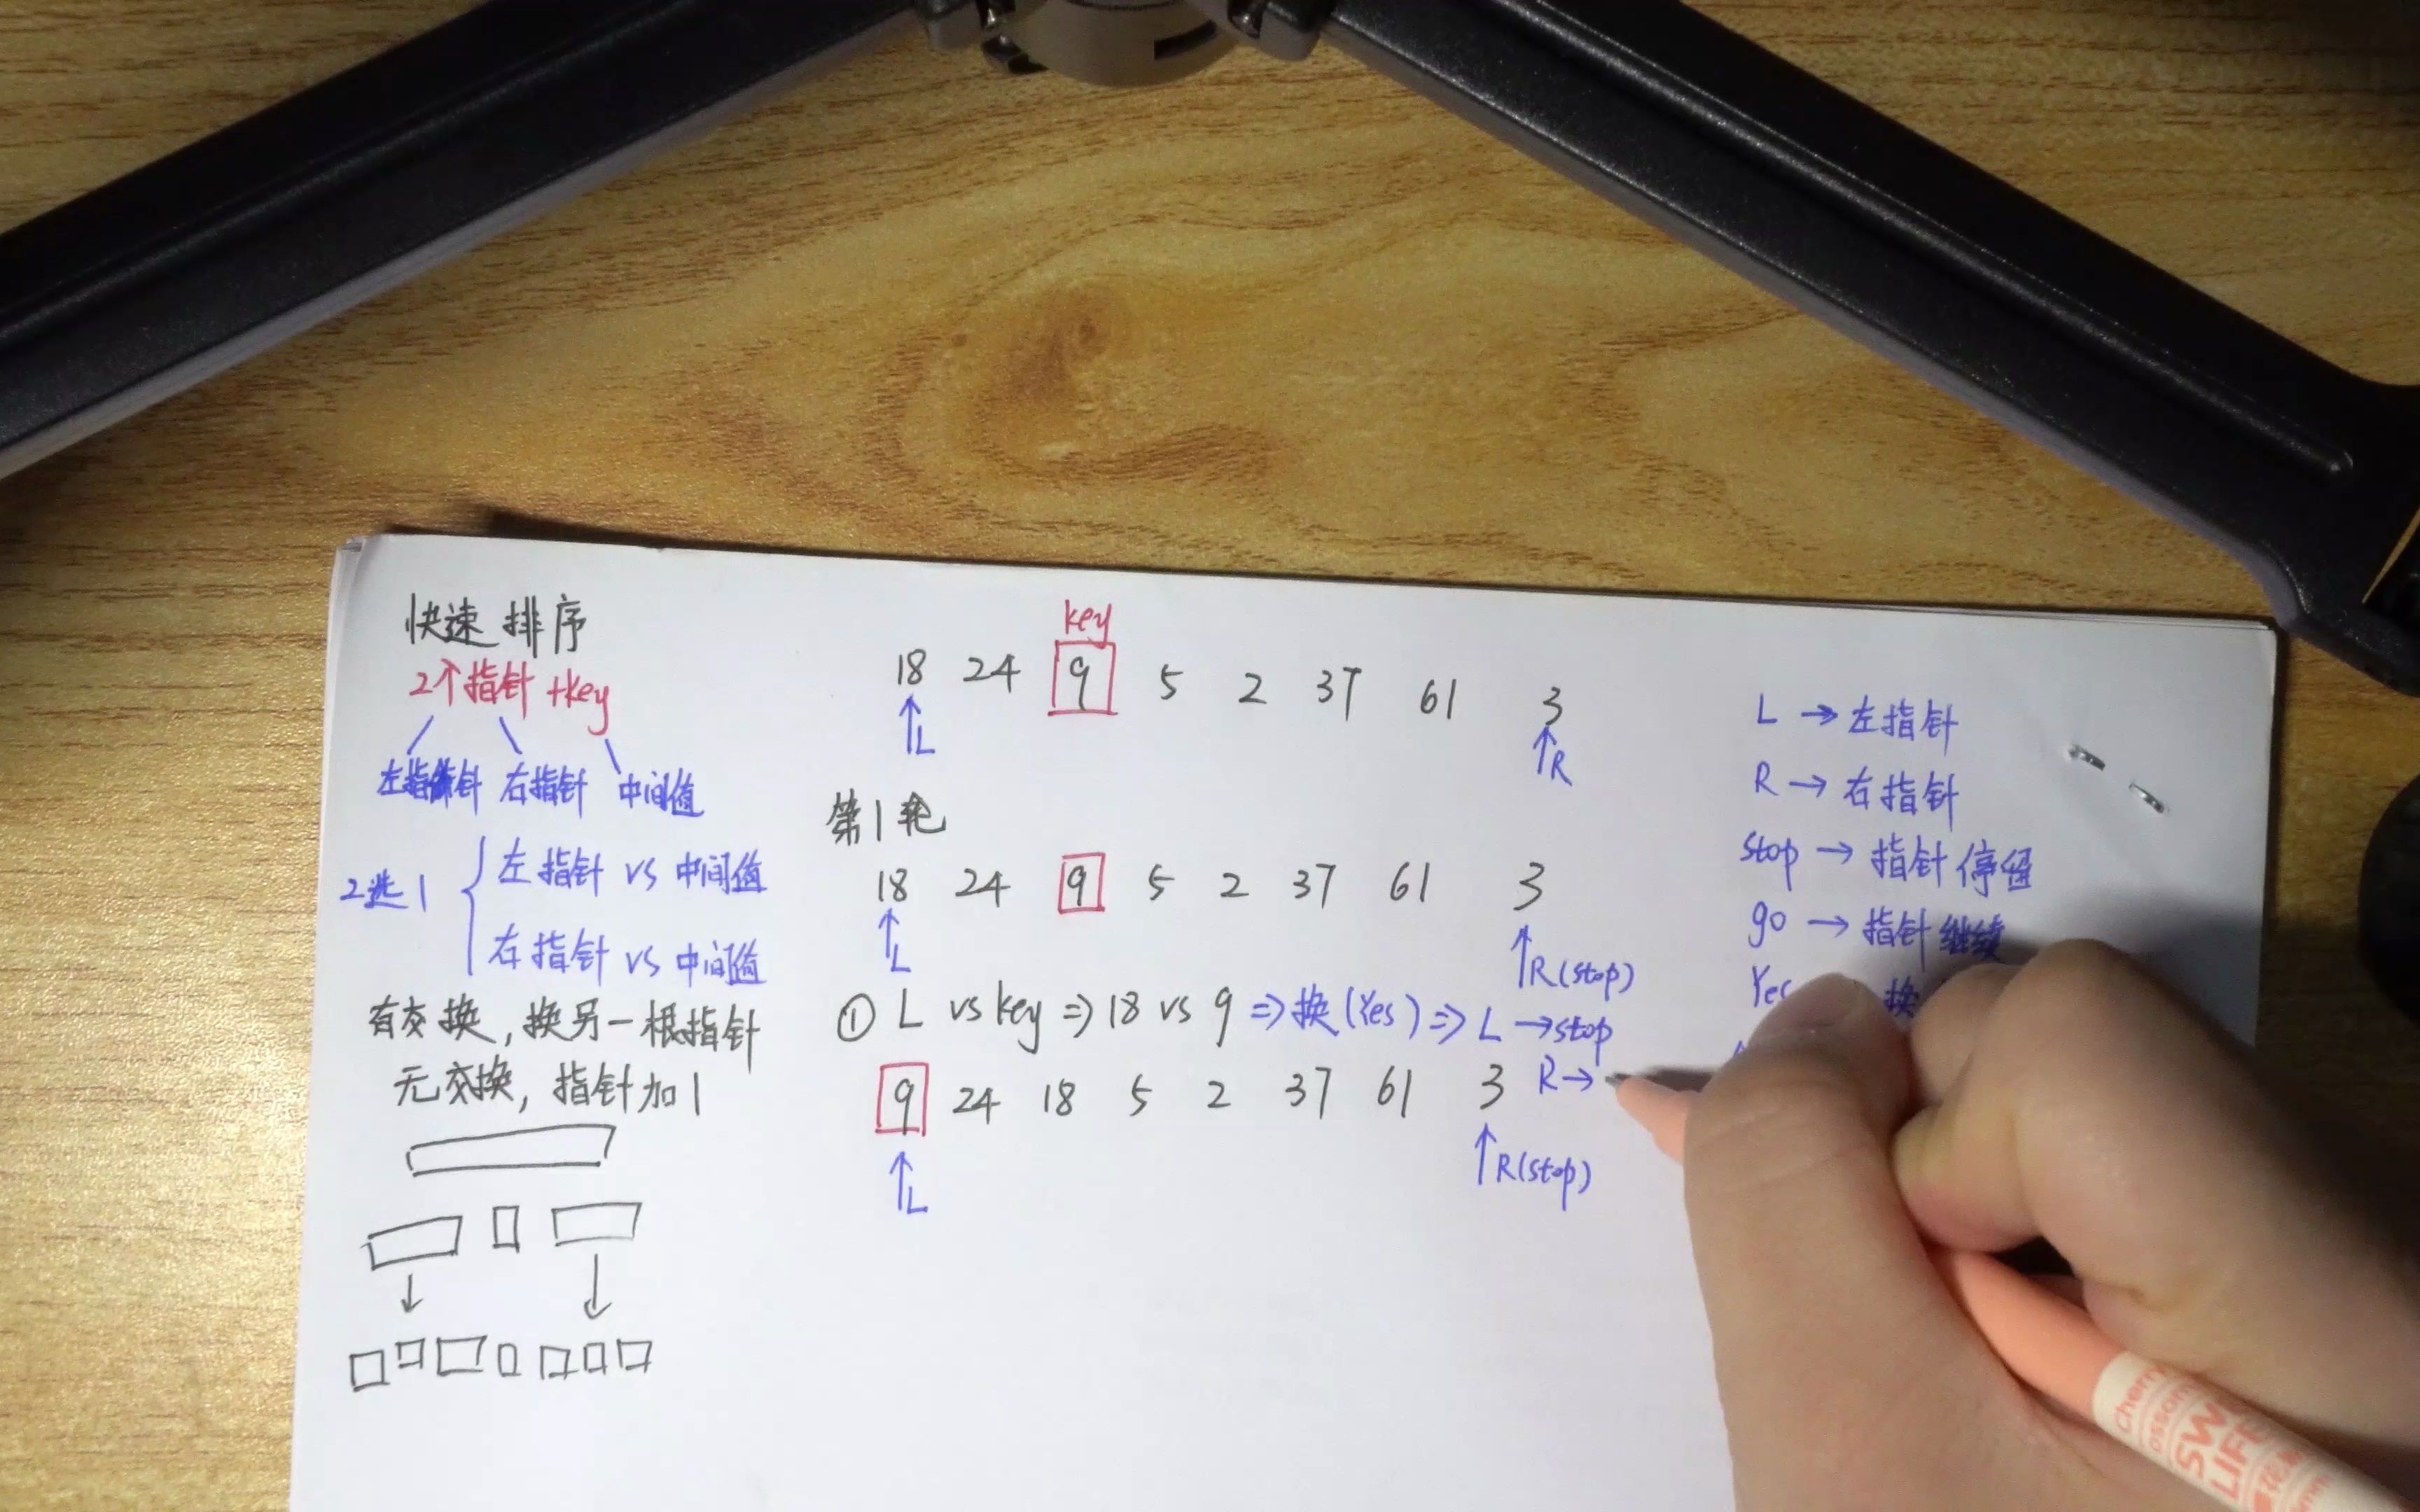 快速排序
2个指针+key
左指针 右指针 中间值
2选1
左指针 vs 中间值
右指针 vs 中间值
有交换,换另一根指针
无交换,指针加1
key
18 24 9 5 2 37 61 3
↑L ↑R
第1轮
18 24 9 5 2 37 61 3
↑L ↑R(stop)
① L vs key ⇒ 18 vs 9 ⇒ 换(Yes) ⇒ L → stop
R →
9 24 18 5 2 37 61 3
↑L ↑R(stop)
L → 左指针
R → 右指针
stop → 指针停留
go → 指针继续
Yes 换
cherry
SW
LIFE